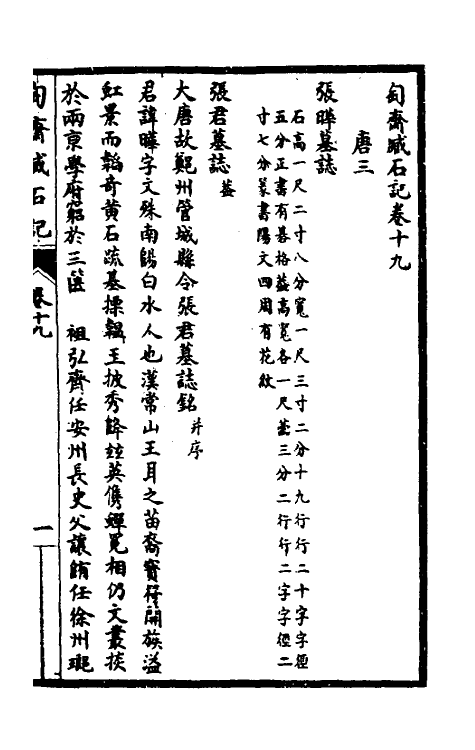 匋齋臧石記卷十九
唐三
張曄墓誌
石高一尺二寸八分寬一尺三寸二分十九行行二十字字徑
五分正書有碁格蓋高寬各一尺蓋三分二行行二字字徑二
寸七分篆書陽文四周有花紋
張君墓誌蓋
大唐故鄭州管城縣令張君墓誌銘并序
君諱曄字文殊南陽白水人也漢常山王耳之苗裔寶符開族溢
虹景而韜奇黃石疏基標韞玉披秀降並英儁蟬冕相仍文叢掞
於兩京學府窮於三篋 祖弘齊任安州長史父讓隋任徐州琡
匋齋臧石記
卷十九
一